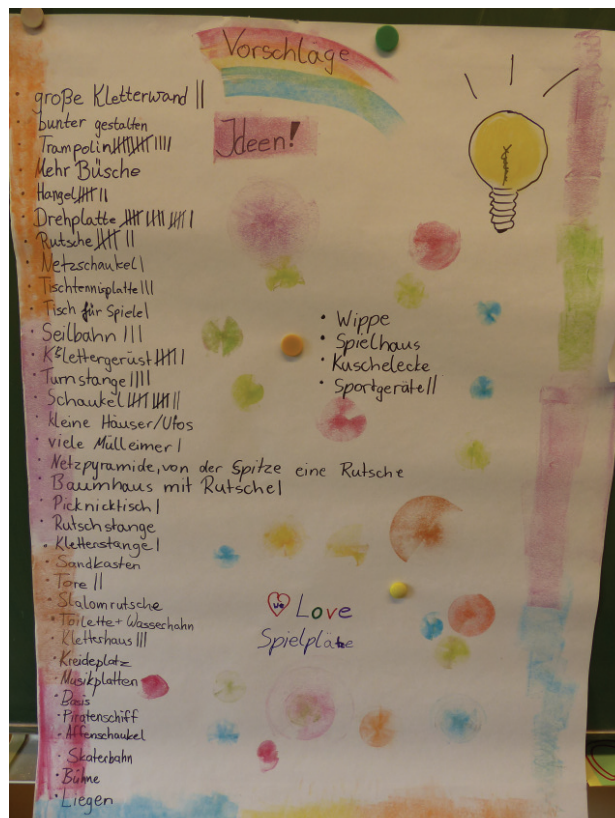 Vorschläge
Ideen!
• große Kletterwand ||
• bunter gestalten
• Trampolin |||| |||| ||||
• Mehr Büsche
• Hangel |||| ||
• Drehplatte |||| |||| |||| |
• Rutsche |||| ||
• Netzschaukel |
• Tischtennisplatte |||
• Tisch für Spiele |
• Seilbahn |||
• Klettergerüst |||| |
• Turnstange ||||
• Schaukel |||| |||| ||
• kleine Häuser/Ufos
• viele Mülleimer |
• Netzpyramide, von der Spitze eine Rutsche
• Baumhaus mit Rutsche |
• Picknicktisch |
• Rutschstange
• Kletterstange |
• Sandkasten
• Tore ||
• Slalomrutsche
• Toilette + Wasserhahn
• Kletterhaus |||
• Kreideplatz
• Musikplatten
• Basis
• Piratenschiff
• Affenschaukel
• Skaterbahn
• Bühne
• Liegen
• Wippe
• Spielhaus
• Kuschelecke
• Sportgeräte ||
We Love
Spielplätze